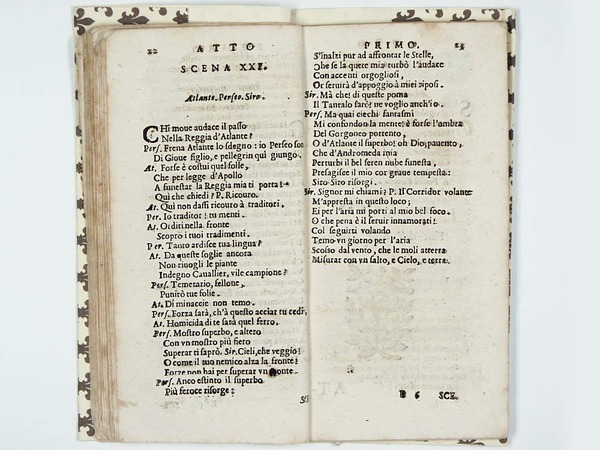 22 ATTO
SCENA XXI.
Atlante. Perseo. Siro.
CHi moue audace il passo
Nella Reggia d'Atlante?
Pers. Frena Atlante lo sdegno: io Perseo son
Di Gioue figlio, e pellegrin quì giungo.
At. Forse è costui quel folle,
Che per legge d'Apollo
A funestar la Reggia mia ti porta?
Quì che chiedi? P. Ricouro.
At. Quì non dassi ricouro à traditori,
Per. Io traditor? tu menti.
At. Orditi nella fronte
Scopro i tuoi tradimenti.
Per. Tanto ardisce tua lingua?
At. Da queste soglie ancora
Non riuogli le piante
Indegno Cauallier, vile campione?
Pers. Temerario, fellone,
Punirò tue folie.
At. Di minaccie non temo.
Pers. Forza sarà, ch'à questo acciar tu cedi,
At. Homicida di te sarà quel ferro,
Pers. Mostro superbo, e altero
Con vn mostro più fiero
Superar ti saprò. Sir. Cieli, che veggio?
O come il suo nemico alza la fronte!
Forze non hai per superar vn monte.
Pers. Anco estinto il superbo
Più feroce risorge:
PRIMO. 23
S'inalzi pur ad affrontar le Stelle,
Che se la quete mia turbò l'audace
Con accenti orgogliosi,
Or seruirà d'appoggio à miei riposi.
Sir. Mà che! di queste poma
Il Tantalo sarò: ne voglio anch'io.
Pers. Ma quai ciechi fantasmi
Mi confondon la mente: è forse l'ombra
Del Gorgoneo portento,
O d'Atlante il superbo: oh Dio, pauento,
Che d'Andromeda mia
Perturbi il bel seren nube funesta,
Presagisce il mio cor graue tempesta:
Siro Siro risorgi.
Sir. Signor mi chiami? P. Il Corridor volante
M'appresta in questo loco;
Ei per l'aria mi porti al mio bel foco.
O che pena è il seruir innamorati!
Col seguirti volando
Temo vn giorno per l'aria
Scosso dal vento, che le moli atterra
Misurar con vn salto, e Cielo, e terra.
B 6 SCE.